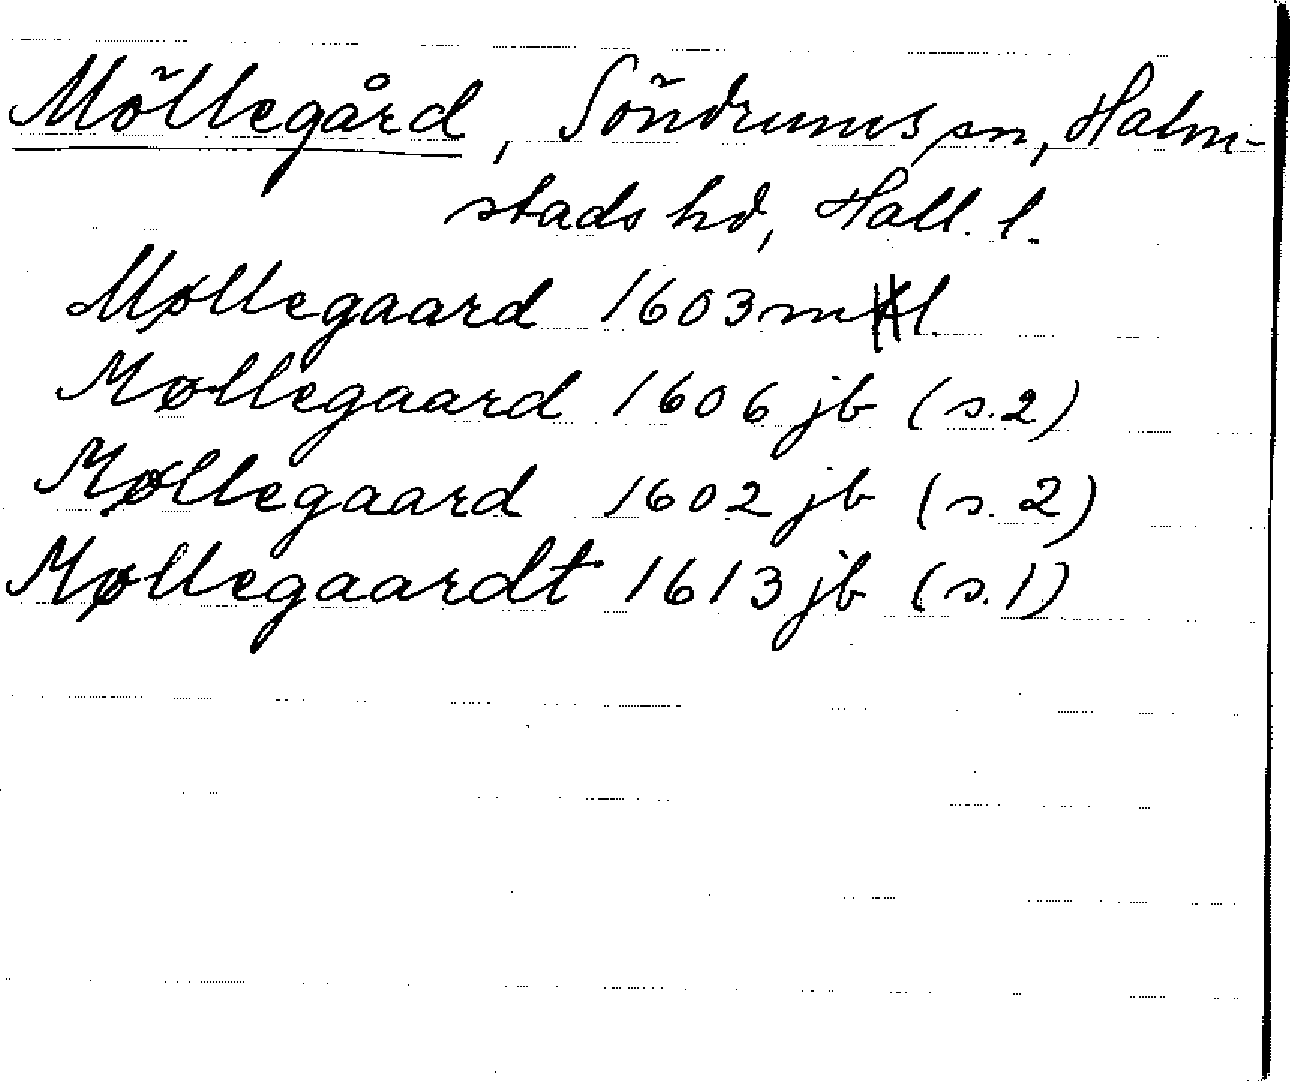 Möllegård, Söndrums sn, Halm-
stads hd, Hall. l.
Møllegaard 1603
Møllegaard 1606 jb (s. 2)
Møllegaard 1602 jb (s. 2)
Møllegaardt 1613 jb (s. 1)